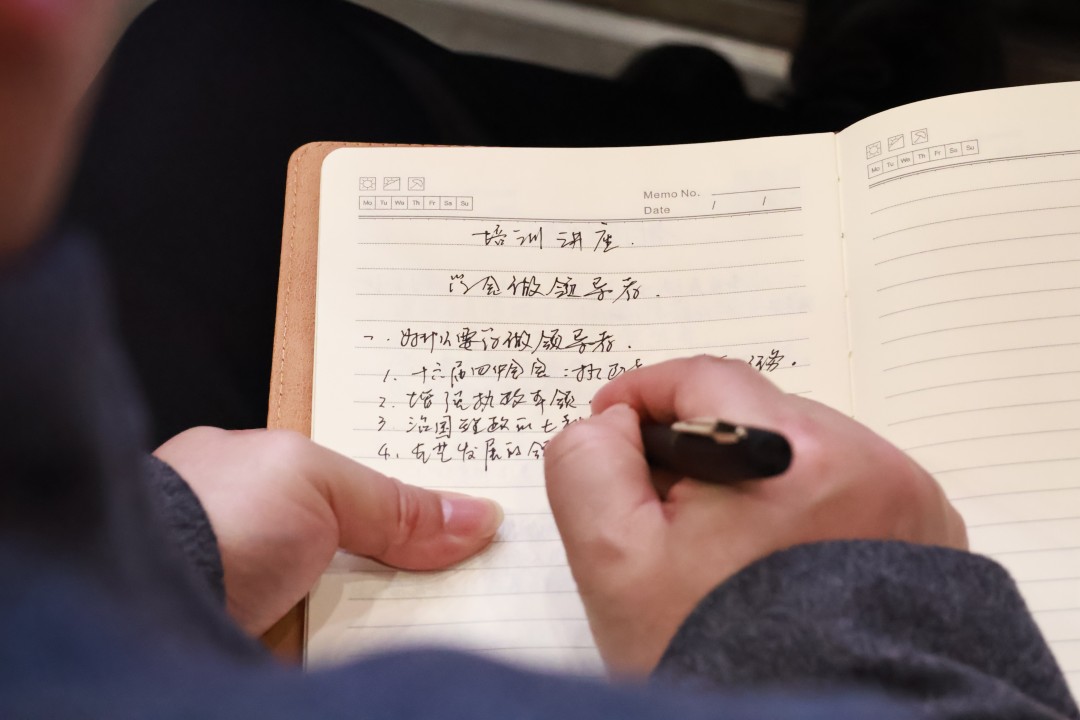 Mo Tu We Th Fr Sa Su
Memo No.
Date / /
培训讲座.
学会做领导者.
一.为什么要学做领导者.
1. 十六届四中全会:执政 任务.
2. 增强执政本领
3 治国理政的
4. 发展的领
Mo Tu We Th Fr Sa Su